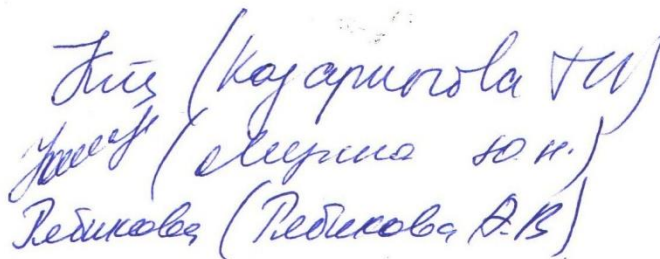 (Казарногова Т.Н)
( Мерина Ю.Н.)
Рябикова (Рябикова А.В)